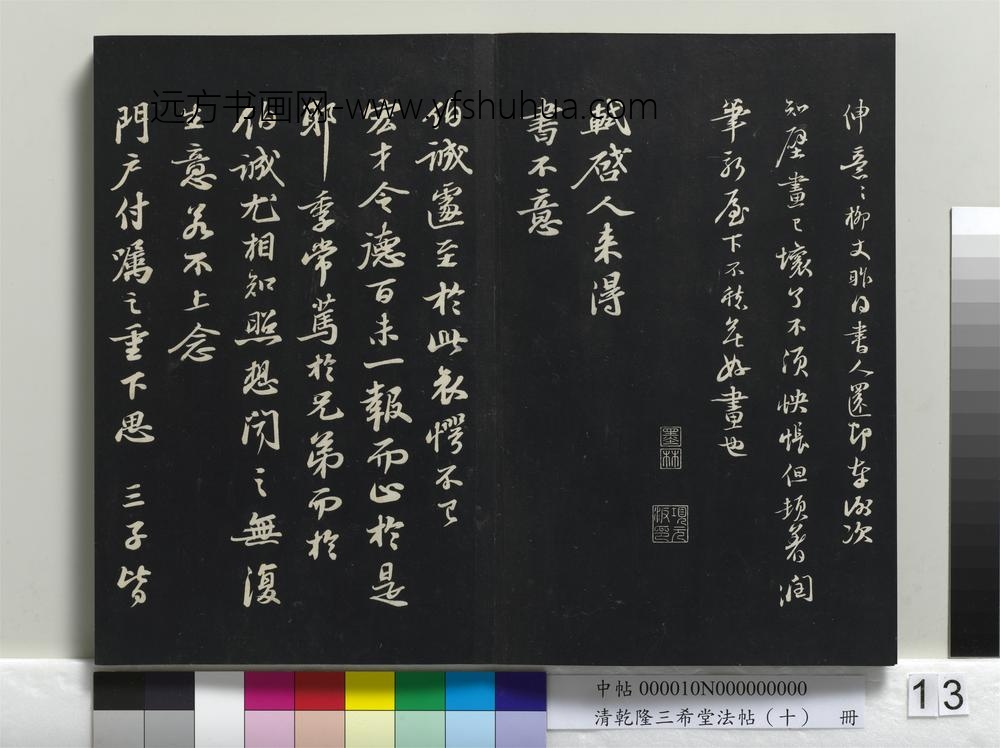 伸意之柳丈昨得書人還即奉謝次
知壁畫已壞了不須怏悵但頓著潤
筆新屋下不愁無好畫也
墨林
項元汴印
軾啓人來得
書不意
伯誠遽至於此哀愕不已
宏才令德百未一報而止於是
耶季常篤於兄弟而於
伯誠尤相知照想聞之無復
生意若不上念
門户付囑之重下思三子皆
远方书画网-www.yfshuhua.com
中帖 000010N000000000
清乾隆三希堂法帖（十） 冊
13